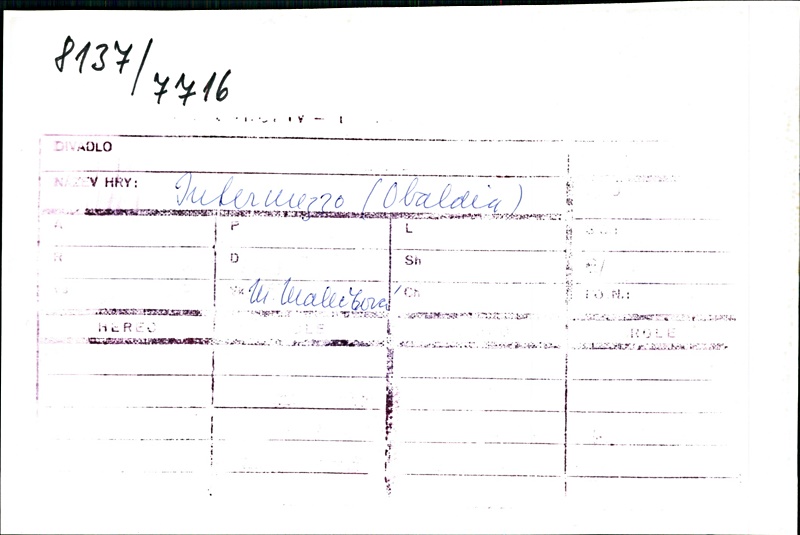 8137/
7716
DIVADLO
NÁZEV HRY: Intermezzo (Obaldia)
A P L
R D Sh
M. Malečková Ch
HEREC ROLE